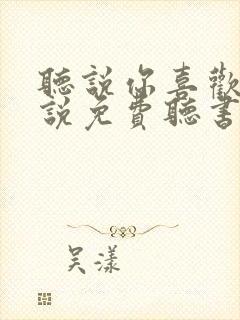 聽說你喜歡
說免費聽書
吴漾